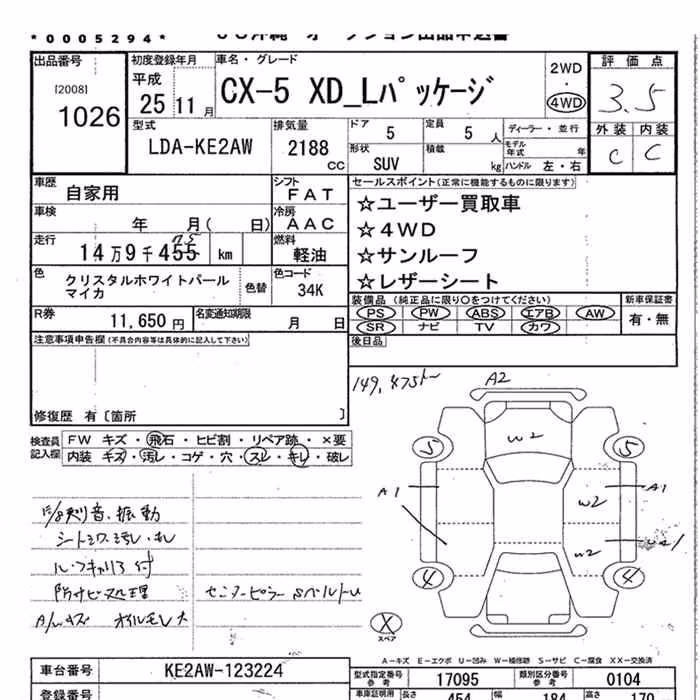 *0005294*
出品番号
[2008]
1026
初度登録年月
平成
25 11月
車名・グレード
CX-5 XD_Lパッケージ
2WD
・
4WD
評価点
3.5
外装 内装
C C
型式
LDA-KE2AW
排気量
2188
CC
ドア 5
定員 5 人
形状 SUV
積載 kg
ディーラー・並行
モデル年式 年
ハンドル 左・右
車歴
自家用
シフト
FAT
車検
年 月( 日)
冷房
AAC
走行
14万9千455 km
75
燃料
軽油
色
クリスタルホワイトパール
マイカ
色替
色コード
34K
R券
11,650 円
名変通知期限
月 日
セールスポイント(正常に機能するものに限ります)
☆ユーザー買取車
☆4WD
☆サンルーフ
☆レザーシート
装備品(純正品に限り○をつけてください)
PS PW ABS エアB AW
SR ナビ TV カワ
新車保証書
有・無
後日品
注意事項申告欄(不具合内容等は具体的に記入して下さい)
修復歴 有〔箇所 〕
検査員
記入欄
FW キズ・飛石・ヒビ割・リペア跡・×要
内装 キズ・汚レ・コゲ・穴・スレ・キレ・破レ
149,475㌔
A2
W2
5
5
A1
A1
W2
W2
4
4
X
スペア
音、振動
シートシワ、汚レ、キレ
付
防サビ処理
オイルモレ大
センターピラー Sベルト
A-キズ E-エクボ U-凹み W-補修跡 S-サビ C-腐食 XX-交換済
車台番号
KE2AW-123224
登録番号
型式指定番号
参考
17095
類別区分番号
参考
0104
車庫証明用
長さ 454
幅 184
高さ 170